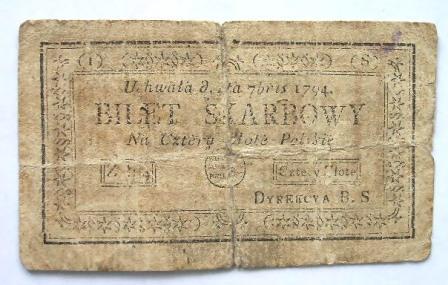 (1) (S)
Uchwała d. 4ta 7bris 1794.
BILET SKARBOWY
Na Cztery Złote Polskie
4 Złł Cztery Złote
DYREKCYA B. S